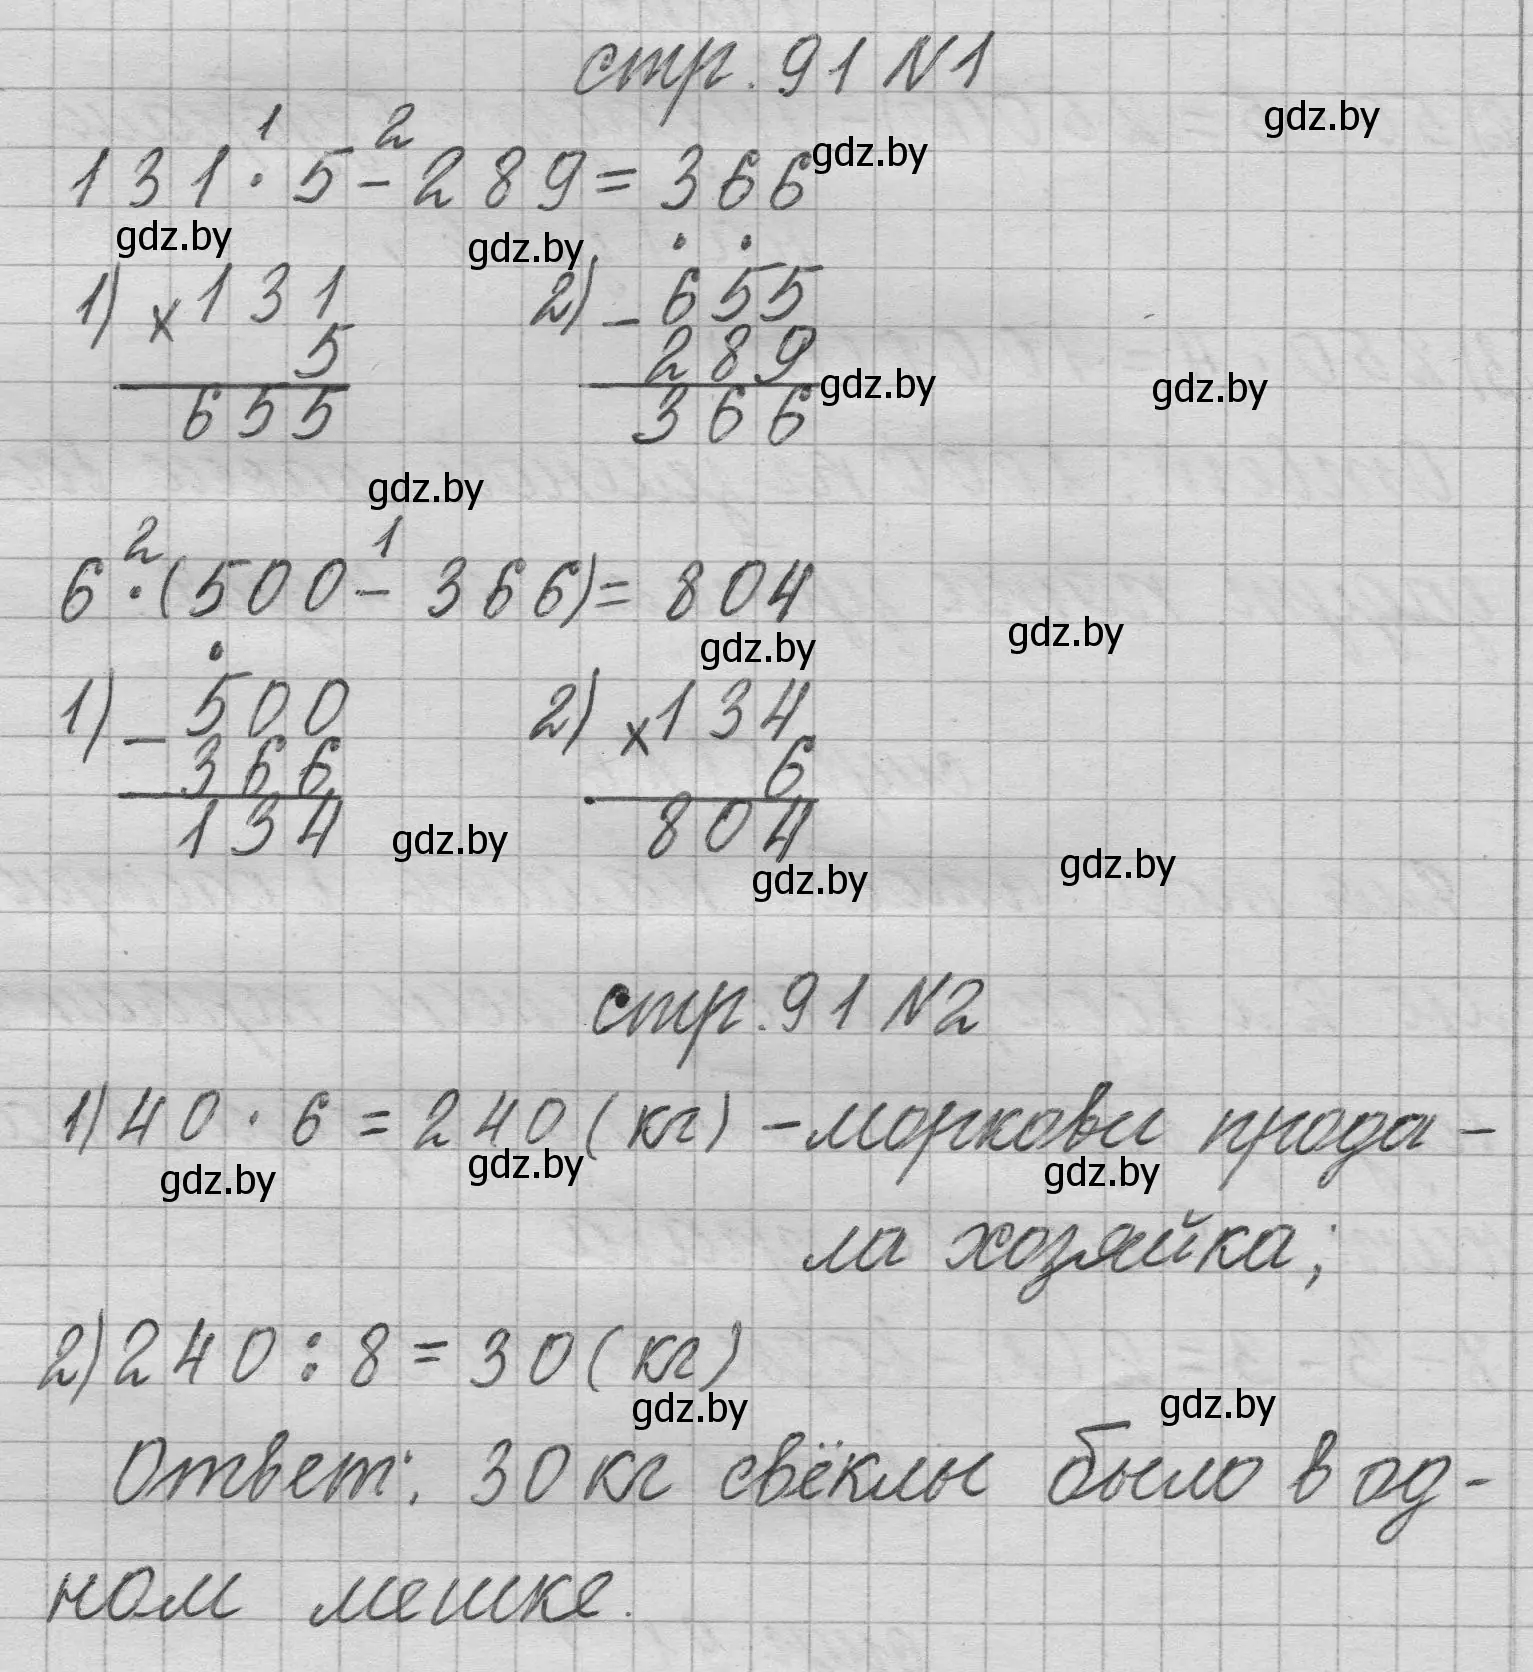 стр. 91 №1
gdz.by
1 2
131 · 5 - 289 = 366 gdz.by
gdz.by gdz.by
1) × 131 2) - 655
5 289
gdz.by gdz.by
655 366
gdz.by
2 1
6 · (500 - 366) = 804
gdz.by gdz.by
1) - 500 2) × 134
366 6
134 804
gdz.by gdz.by gdz.by
стр. 91 №2
1) 40 · 6 = 240 (кг) - моркови прода-
gdz.by gdz.by gdz.by
ла хозяйка;
2) 240 : 8 = 30 (кг)
gdz.by gdz.by
Ответ: 30 кг свёклы было в од-
ном мешке.